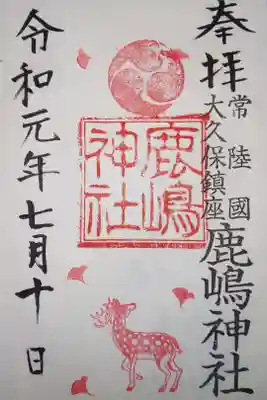 奉拝
常陸國
大久保鎮座
鹿嶋神社
鹿嶋
神社
令和元年七月十日